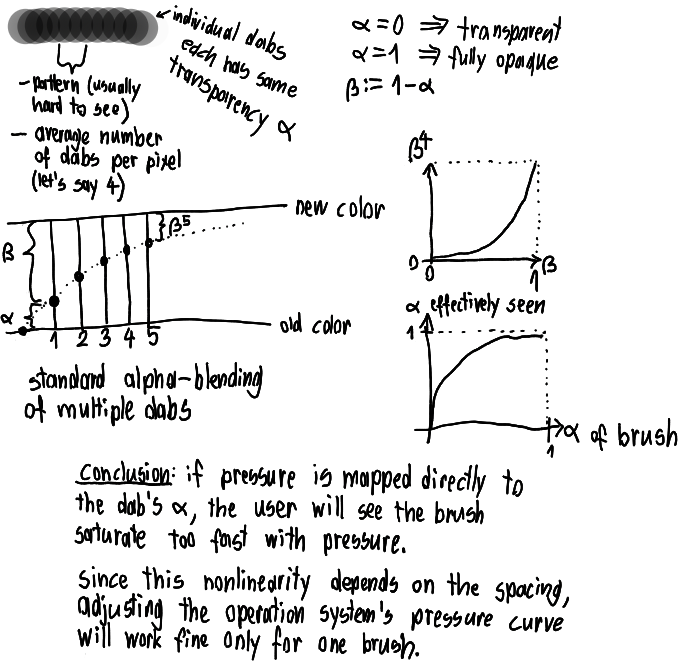 individual dabs
each has same
transparency α
– pattern (usually
hard to see)
– average number
of dabs per pixel
(let's say 4)
α=0 ⇒ transparent
α=1 ⇒ fully opaque
β:= 1-α
new color
β
β⁵
α
old color
1 2 3 4 5
standard alpha-blending
of multiple dabs
β⁴
0
0
1
β
α effectively seen
1
1
α of brush
Conclusion: if pressure is mapped directly to
the dab's α, the user will see the brush
saturate too fast with pressure.
since this nonlinearity depends on the spacing,
adjusting the operation system's pressure curve
will work fine only for one brush.